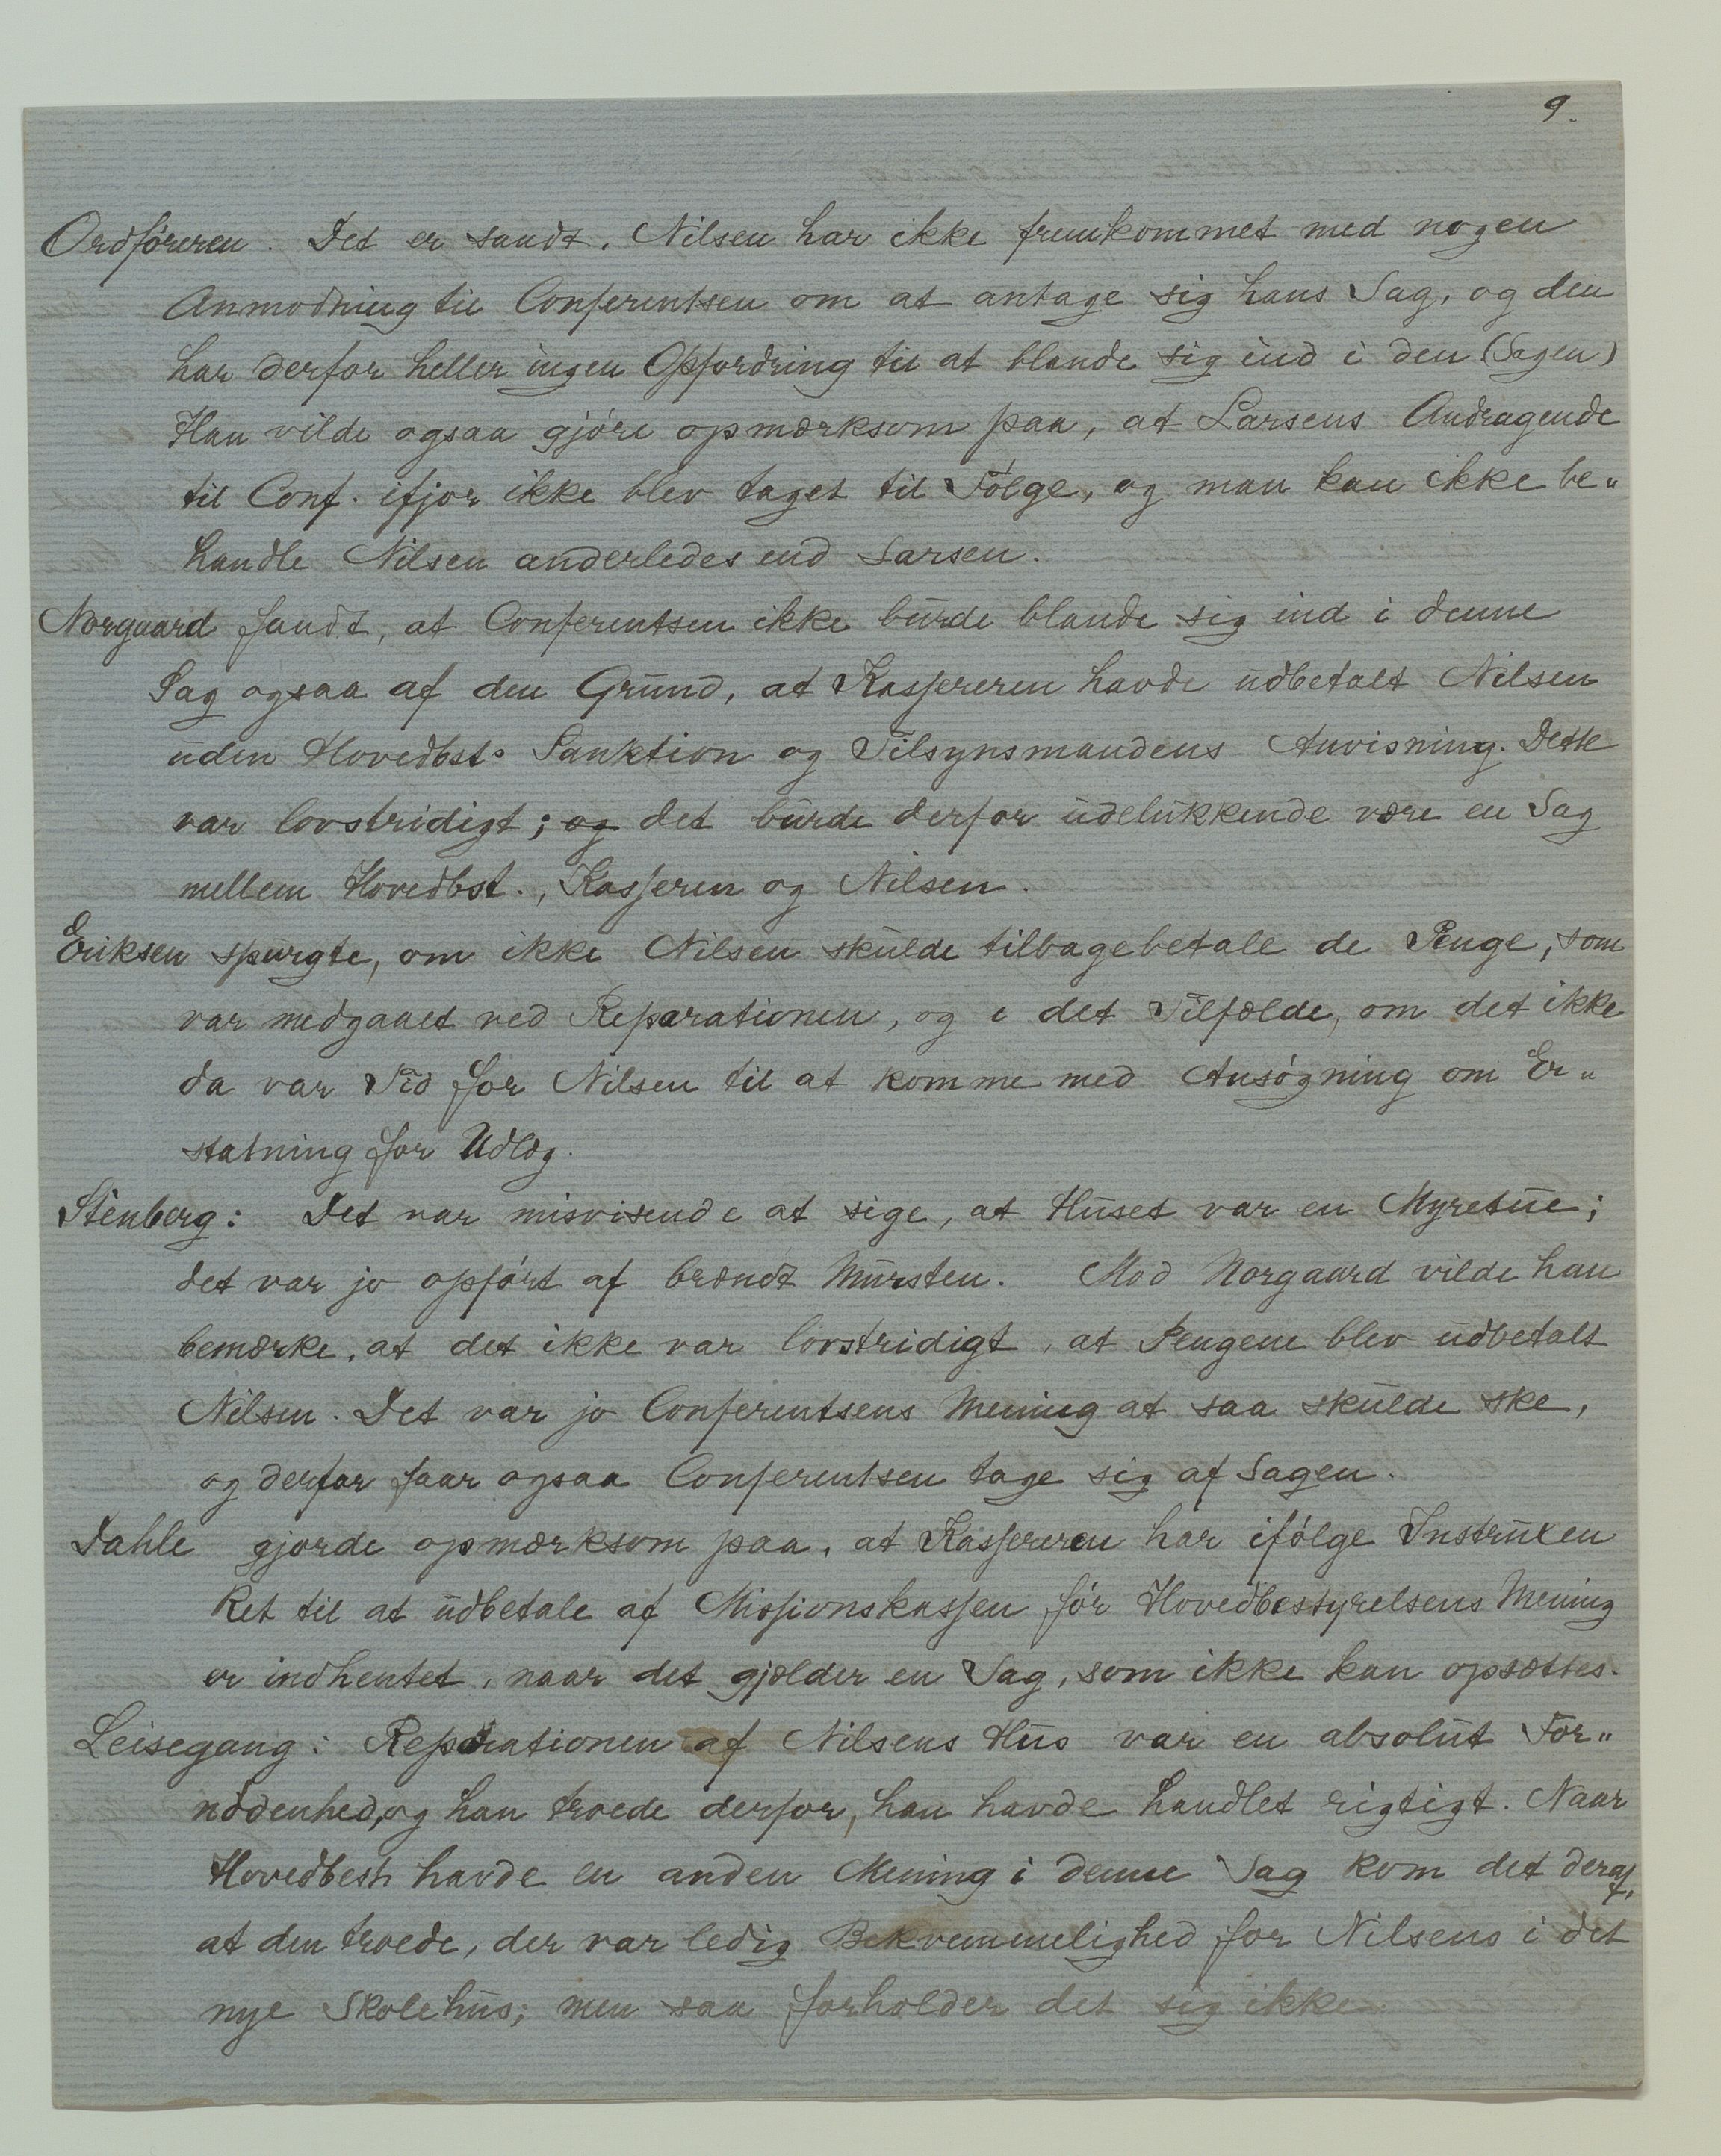 9.
Ordføreren. Det er sandt. Nilsen har ikke fremkommet med nogen
Anmodning til Conferentsen om at antage sig hans Sag, og den
har derfor heller ingen Opfordring til at blande sig ind i den (Sagen)
Han vilde ogsaa gjøre opmærksom paa, at Larsens Andragende
til Conf. ifjor ikke blev taget til Følge, og man kan ikke be„
handle Nilsen anderledes end Larsen.
Norgaard fandt, at Conferentsen ikke burde blande sig ind i denne
Sag ogsaa af den Grund, at Kassereren havde udbetalt Nilsen
uden Hovedbsts Sanktion og Tilsynsmandens Anvisning. Dette
var lovstridigt; og det burde derfor udelukkende være en Sag
mellem Hovedbst., Kasseren og Nilsen.
Eriksen spurgte, om ikke Nilsen skulde tilbagebetale de Penge, som
var medgaaet ved Reparationen, og i det Tilfælde, om det ikke
da var Tid for Nilsen til at komme med Ansøgning om Er„
statning for Udlæg.
Stenberg: Det var misvisende at sige, at Huset var en Myretue;
det var jo opført af brændt Mursten. Mod Norgaard vilde han
bemærke, at det ikke var lovstridigt, at Pengene blev udbetalt
Nilsen. Det var jo Conferentsens Mening at saa skulde ske,
og derfor faar ogsaa Conferentsen tage sig af Sagen.
Dahle gjorde opmærksom paa, at Kassereren har ifølge Instruxen
Ret til at udbetale af Missionskassen før Hovedbestyrelsens Mening
er indhentet, naar det gjælder en Sag, som ikke kan opsættes.
Leisegang: Reparationen af Nilsens Hus var en absolut For„
nødenhed, og han troede derfor, han havde handlet rigtigt. Naar
Hovedbest. havde en anden Mening i denne Sag kom det deraf,
at den troede, der var ledig Bekvemmelighed for Nilsens i det
nye Skolehus; men saa forholder det sig ikke